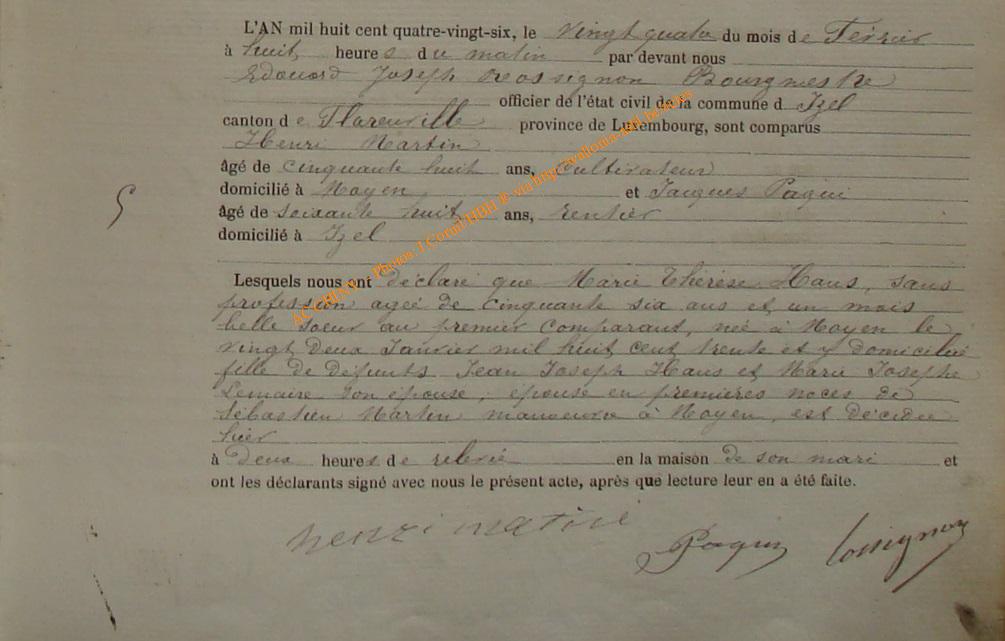 L'AN mil huit cent quatre-vingt-six, le vingt quatre du mois de Février
à huit heures du matin par devant nous
Edouard Joseph Rossignon Bourgmestre
officier de l'état civil de la commune d Izel
canton de Florenville province de Luxembourg, sont comparus
Henri Martin
âgé de cinquante huit ans, cultivateur
domicilié à Moyen et Jacques Paquin
âgé de soixante huit ans, rentier
domicilié à Izel
Lesquels nous ont déclaré que Marie Thérèse Haus, sans
profession agée de cinquante six ans et un mois
belle soeur au premier comparant, née à Moyen le
vingt deux Janvier mil huit cent trente et y domiciliée
fille de défunts Jean Joseph Haus et Marie Josephe
Lemaire son épouse, épouse en premières noces de
Sébastien Martin manoeuvre à Moyen, est décédée
hier
à deux heures de relevée en la maison de son mari et
ont les déclarants signé avec nous le présent acte, après que lecture leur en a été faite.
henri matin
Paquin Rossignon
5
Photos J Cornil HBH ® via http://avaloma.